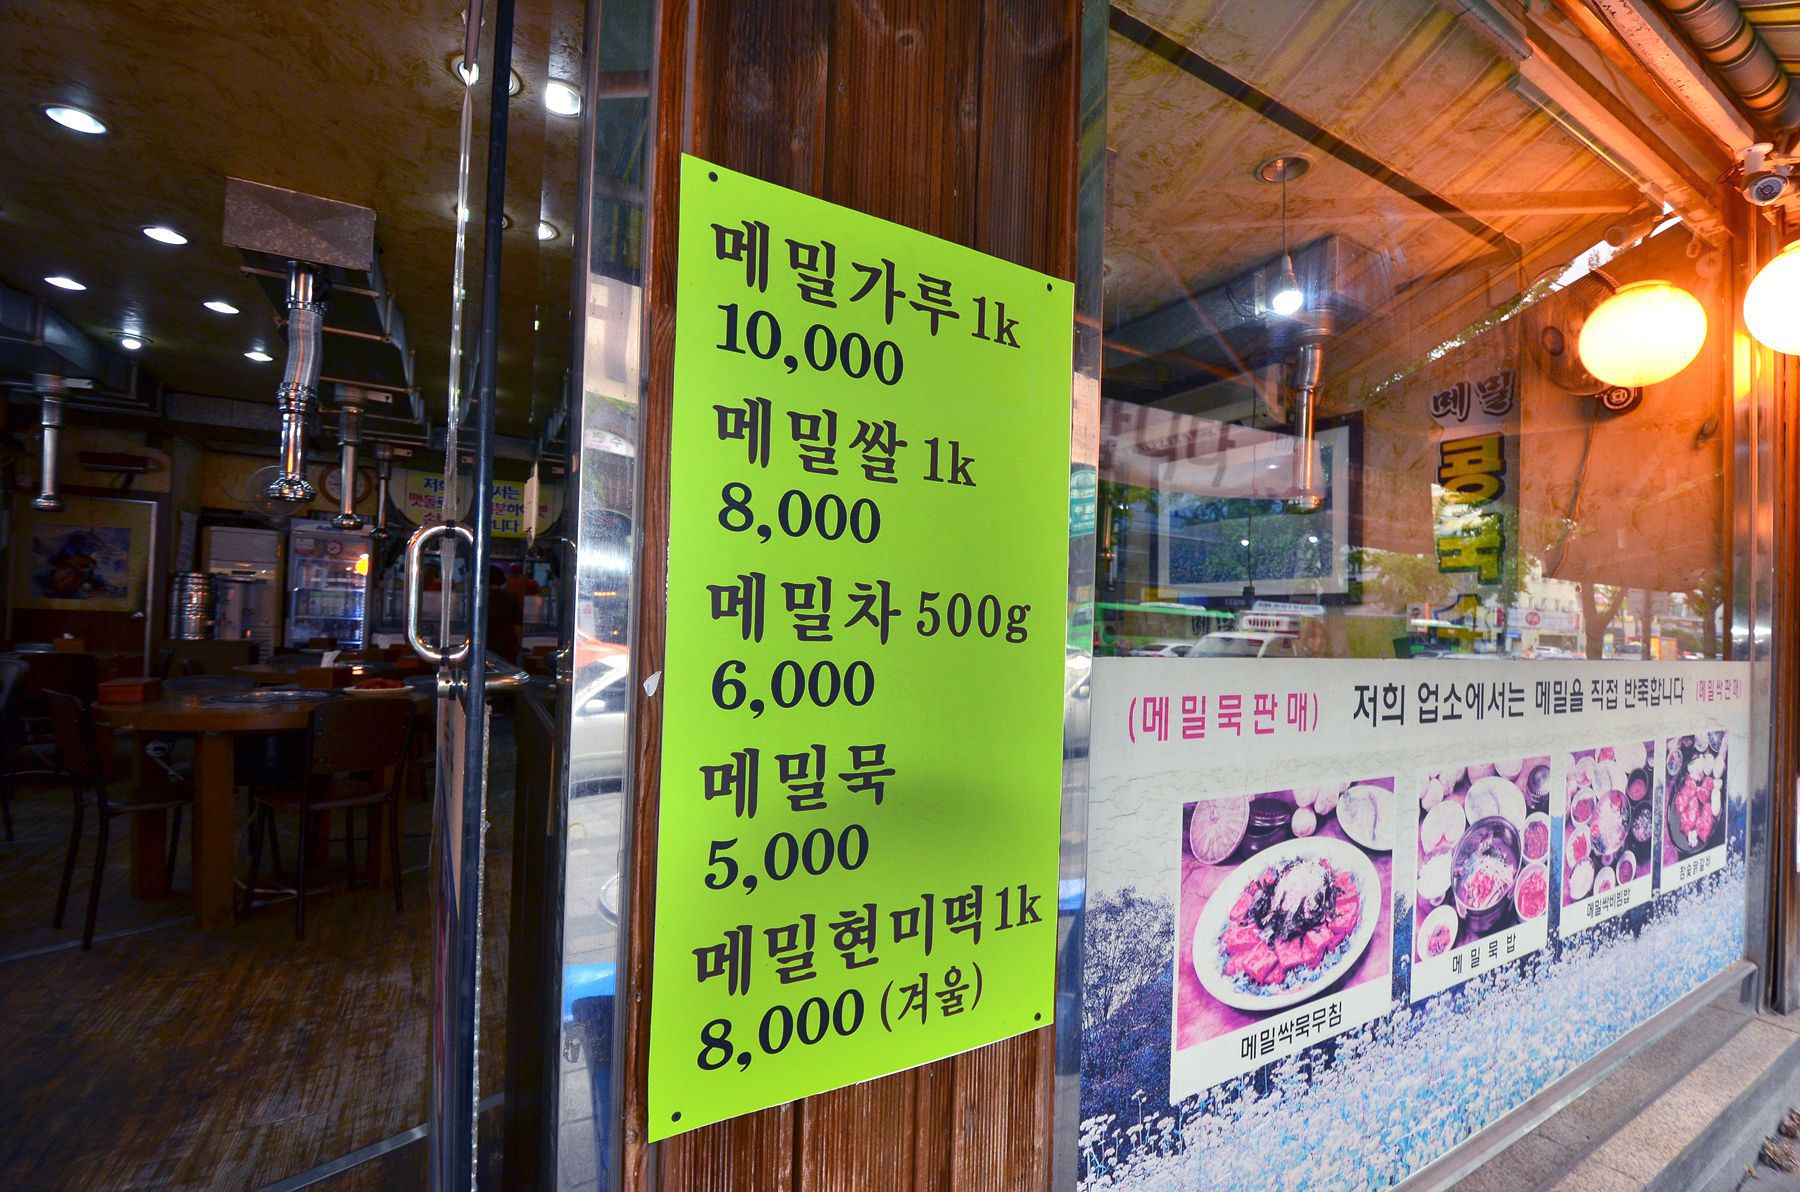 메밀가루 1k
10,000
메밀쌀 1k
8,000
메밀차 500g
6,000
메밀묵
5,000
메밀현미떡 1k
8,000 (겨울)
메밀
콩국수
(메밀묵판매) 저희 업소에서는 메밀을 직접 반죽합니다 (메밀싹판매)
메밀싹묵무침
메밀묵밥
메밀싹비빔밥
참숯닭갈비